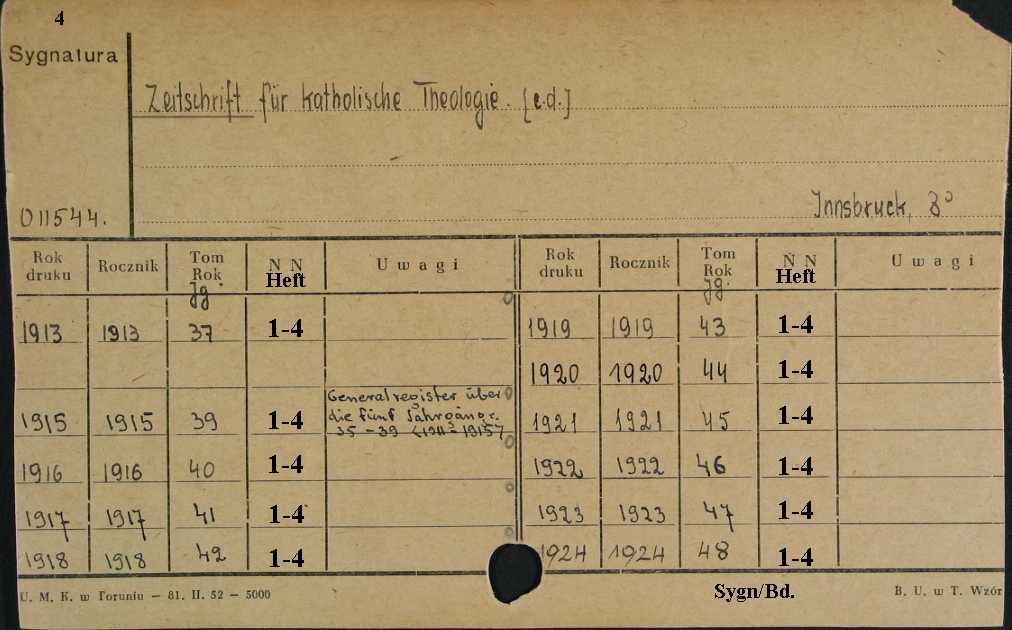 4
Sygnatura
Zeitschrift für katholische Theologie. [e.d.]
011544.
Innsbruck, 8°
Rok druku Rocznik Tom Rok Jg. N N Heft Uwagi Rok druku Rocznik Tom Rok Jg. N N Heft Uwagi
1913 1913 37 1-4 1919 1919 43 1-4
1920 1920 44 1-4
Generalregister über
die fünf Jahrgänge.
35-39 (1911-1915)
1915 1915 39 1-4 1921 1921 45 1-4
1916 1916 40 1-4 1922 1922 46 1-4
1917 1917 41 1-4 1923 1923 47 1-4
1918 1918 42 1-4 1924 1924 48 1-4
Sygn/Bd.
U. M. K. w Toruniu — 81. II. 52 — 5000
B. U. w T. Wzór